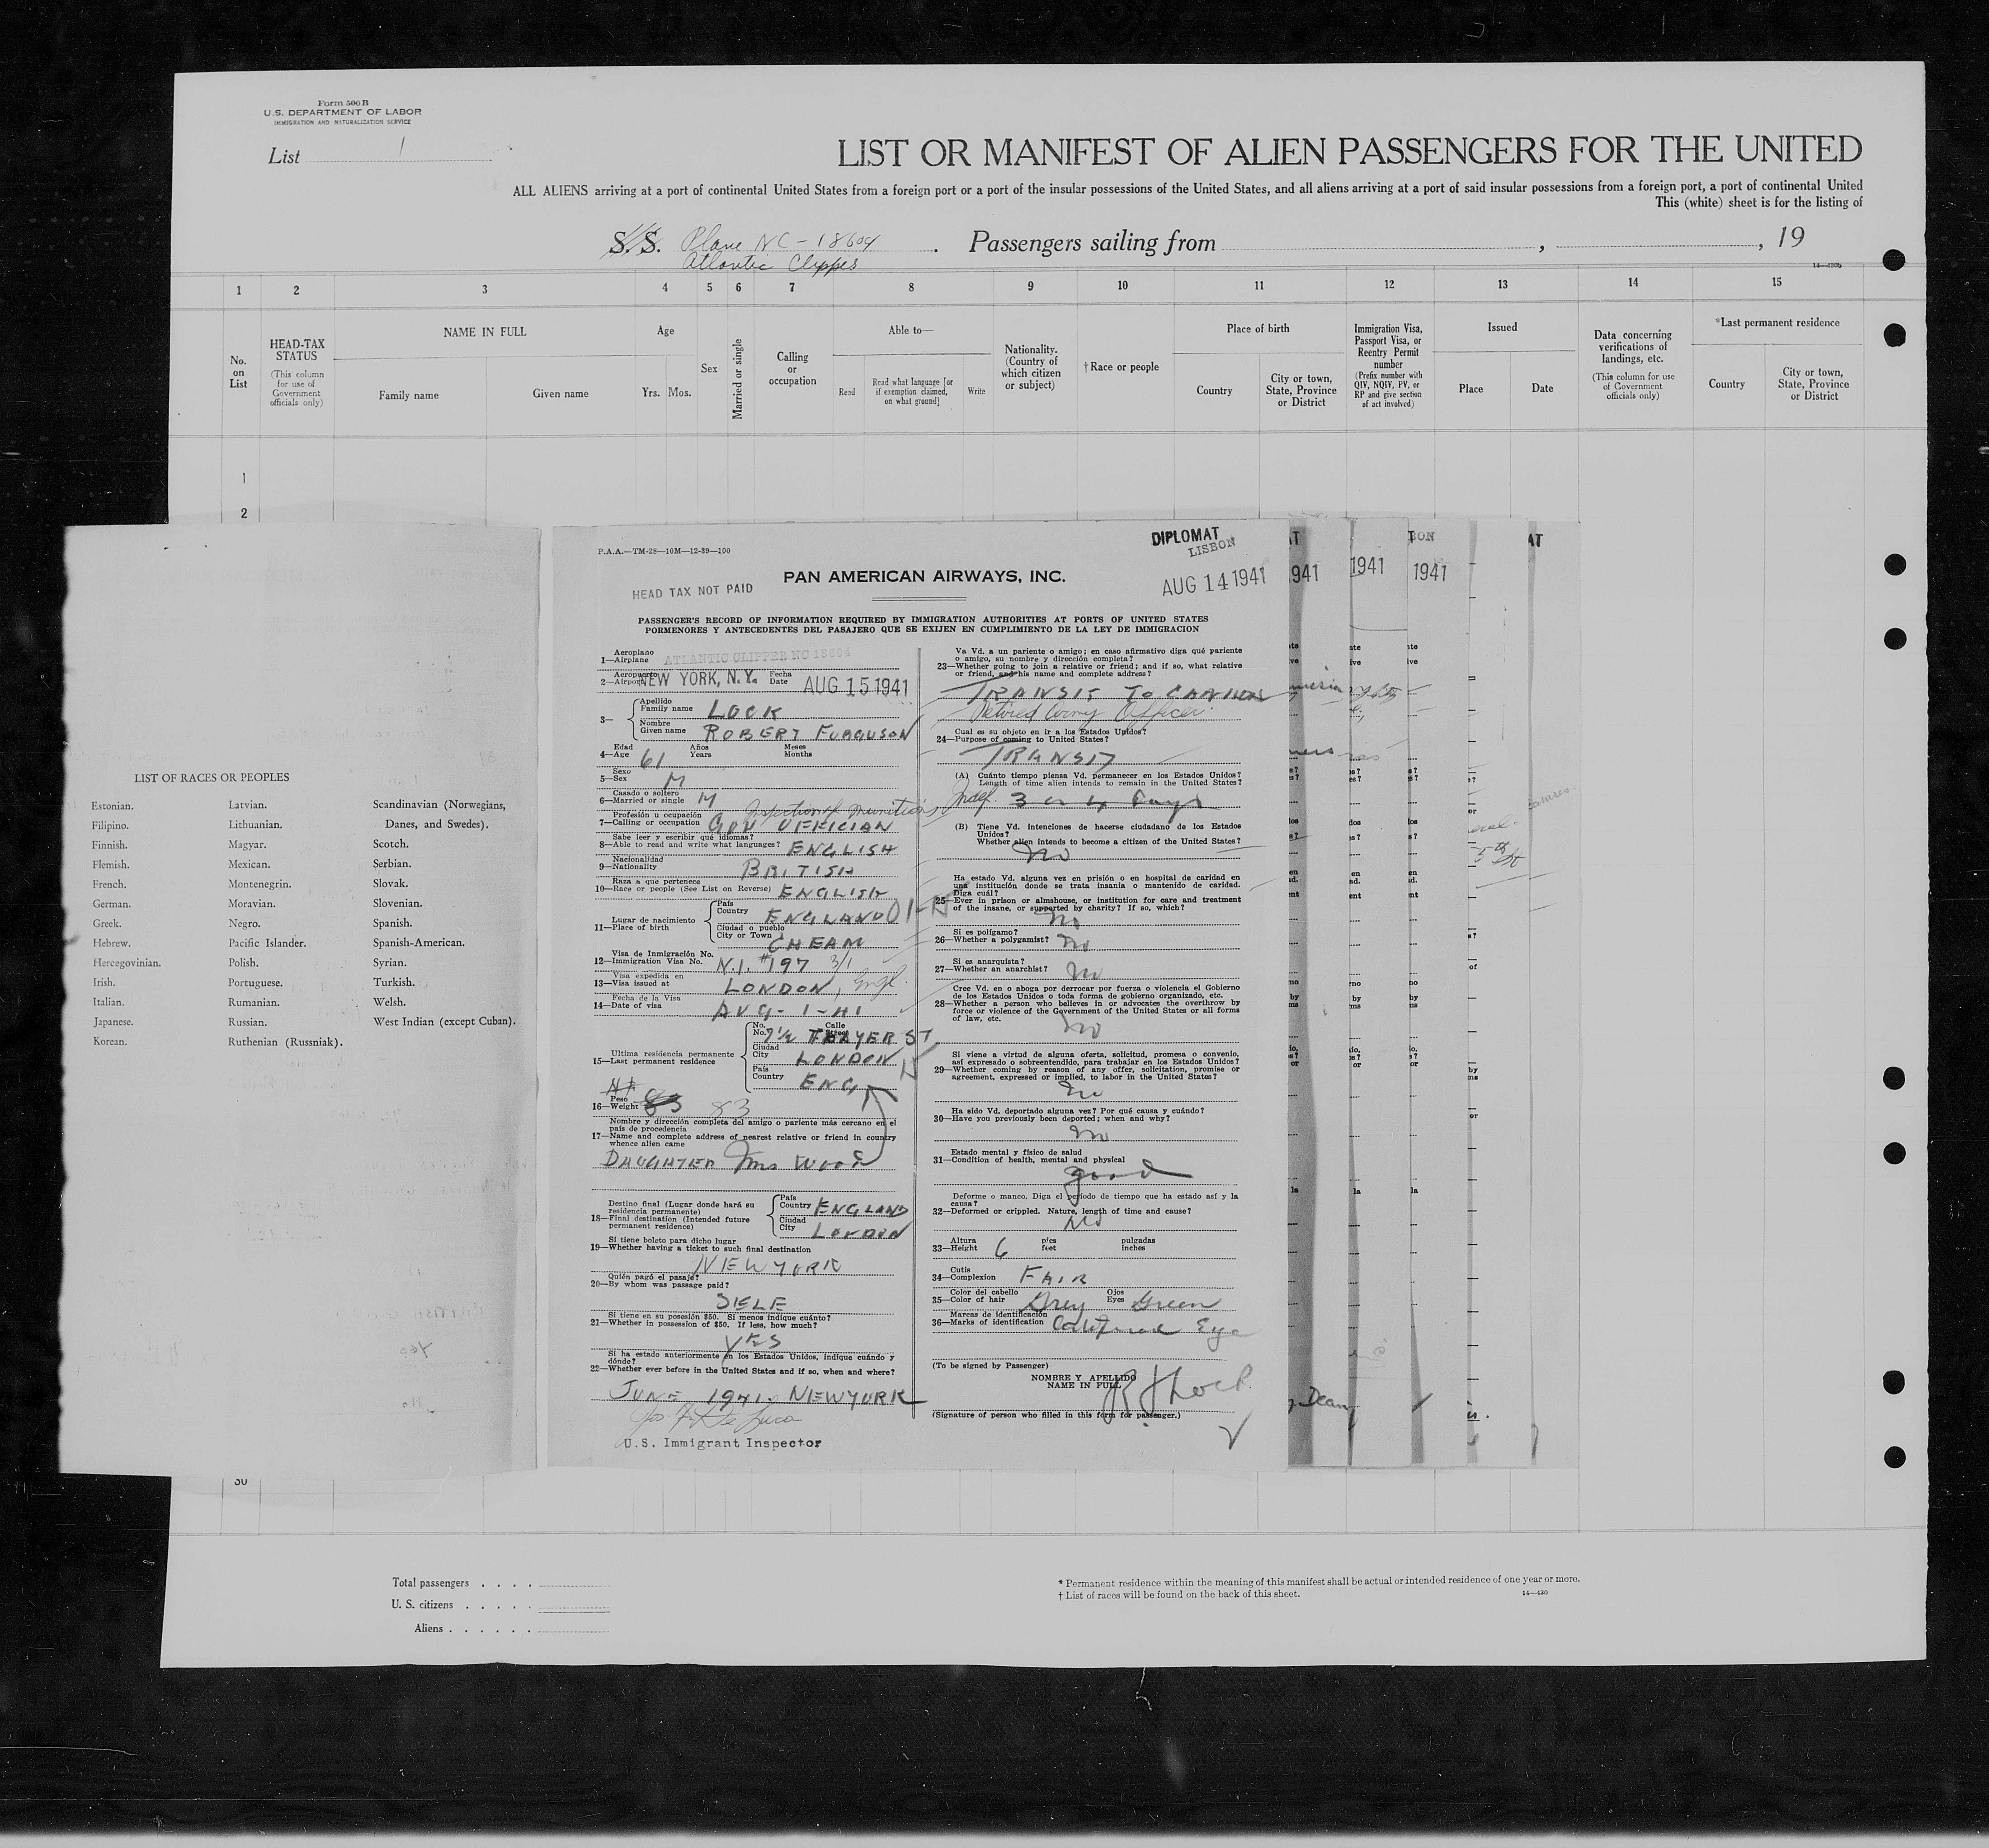 Form 500 B
U.S. DEPARTMENT OF LABOR
IMMIGRATION AND NATURALIZATION SERVICE
List 1
LIST OR MANIFEST OF ALIEN PASSENGERS FOR THE UNITED
ALL ALIENS arriving at a port of continental United States from a foreign port or a port of the insular possessions of the United States, and all aliens arriving at a port of said insular possessions from a foreign port, a port of continental United
This (white) sheet is for the listing of
S.S. Plane NC-18604 Passengers sailing from , , 19
Atlantic Clipper
1 2 3 4 5 6 7 8 9 10 11 12 13 14 15
No. on List
HEAD-TAX STATUS
(This column for use of Government officials only)
NAME IN FULL
Family name
Given name
Age
Yrs. Mos.
Sex
Married or single
Calling or occupation
Able to—
Read
Read what language [or if exemption claimed, on what ground]
Write
Nationality. (Country of which citizen or subject)
†Race or people
Place of birth
Country
City or town, State, Province or District
Immigration Visa, Passport Visa, or Reentry Permit number
(Prefix number with QIV, NQIV, PV, or RP and give section of act involved)
Issued
Place
Date
Data concerning verifications of landings, etc.
(This column for use of Government officials only)
*Last permanent residence
Country
City or town, State, Province or District
1
2
LIST OF RACES OR PEOPLES
Estonian. Latvian. Scandinavian (Norwegians,
Filipino. Lithuanian. Danes, and Swedes).
Finnish. Magyar. Scotch.
Flemish. Mexican. Serbian.
French. Montenegrin. Slovak.
German. Moravian. Slovenian.
Greek. Negro. Spanish.
Hebrew. Pacific Islander. Spanish-American.
Hercegovinian. Polish. Syrian.
Irish. Portuguese. Turkish.
Italian. Rumanian. Welsh.
Japanese. Russian. West Indian (except Cuban).
Korean. Ruthenian (Russniak).
P.A.A.—TM-28—10M—12-39—100
DIPLOMAT
LISBON
HEAD TAX NOT PAID
PAN AMERICAN AIRWAYS, INC.
AUG 14 1941
PASSENGER'S RECORD OF INFORMATION REQUIRED BY IMMIGRATION AUTHORITIES AT PORTS OF UNITED STATES
PORMENORES Y ANTECEDENTES DEL PASAJERO QUE SE EXIJEN EN CUMPLIMIENTO DE LA LEY DE IMMIGRACION
Aeroplano
1—Airplane ATLANTIC CLIPPER NC 18604
Aeropuerto Fecha
2—Airport NEW YORK, N.Y. Date AUG 15 1941
3— Apellido
Family name LOCK
Nombre
Given name ROBERT FURGUSON
Edad Años Meses
4—Age 61 Years Months
Sexo
5—Sex M
Casado o soltero
6—Married or single M
Inspection of munitions
Profesión u ocupación
7—Calling or occupation GOV OFFICIAN
Sabe leer y escribir qué idiomas?
8—Able to read and write what languages? ENGLISH
Nacionalidad
9—Nationality BRITISH
Raza a que pertenece
10—Race or people (See List on Reverse) ENGLISH
Lugar de nacimiento
11—Place of birth
País
Country ENGLAND
Ciudad o pueblo
City or Town CHEAM
Visa de Inmigración No.
12—Immigration Visa No. N.I. #197 3/1
Visa expedida en
13—Visa issued at LONDON, Engl.
Fecha de la Visa
14—Date of visa AUG-1-41
Ultima residencia permanente
15—Last permanent residence
No. Calle
No. 7½ Street THAYER ST.
Ciudad
City LONDON
País
Country ENG
Peso
16—Weight 83 83
Nombre y dirección completa del amigo o pariente más cercano en el
país de procedencia
17—Name and complete address of nearest relative or friend in country
whence alien came
DAUGHTER Mrs WOOD
Destino final (Lugar donde hará su
residencia permanente)
18—Final destination (Intended future
permanent residence)
País
Country ENGLAND
Ciudad
City LONDON
Si tiene boleto para dicho lugar
19—Whether having a ticket to such final destination
NEW YORK
Quién pagó el pasaje?
20—By whom was passage paid?
SELF
Si tiene en su posesión $50. Si menos indique cuánto?
21—Whether in possession of $50. If less, how much?
YES
Si ha estado anteriormente en los Estados Unidos, indique cuándo y
dónde?
22—Whether ever before in the United States and if so, when and where?
JUNE 1941. NEW YORK
U.S. Immigrant Inspector
Va Vd. a un pariente o amigo; en caso afirmativo diga qué pariente
o amigo, su nombre y dirección completa?
23—Whether going to join a relative or friend; and if so, what relative
or friend, and his name and complete address?
TRANSIT TO CANADA
Retired Army Officer.
Cual es su objeto en ir a los Estados Unidos?
24—Purpose of coming to United States?
TRANSIT
(A) Cuánto tiempo piensa Vd. permanecer en los Estados Unidos?
Length of time alien intends to remain in the United States?
Indef. 3 or 4 Days
(B) Tiene Vd. intenciones de hacerse ciudadano de los Estados
Unidos?
Whether alien intends to become a citizen of the United States?
no
Ha estado Vd. alguna vez en prisión o en hospital de caridad en
una institución donde se trata insania o mantenido de caridad.
Diga cuál?
25—Ever in prison or almshouse, or institution for care and treatment
of the insane, or supported by charity? If so, which?
no
Si es polígamo?
26—Whether a polygamist? no
Si es anarquista?
27—Whether an anarchist? no
Cree Vd. en o aboga por derrocar por fuerza o violencia el Gobierno
de los Estados Unidos o toda forma de gobierno organizado, etc.
28—Whether a person who believes in or advocates the overthrow by
force or violence of the Government of the United States or all forms
of law, etc.
no
Si viene a virtud de alguna oferta, solicitud, promesa o convenio,
así expresado o sobreentendido, para trabajar en los Estados Unidos?
29—Whether coming by reason of any offer, solicitation, promise or
agreement, expressed or implied, to labor in the United States?
no
Ha sido Vd. deportado alguna vez? Por qué causa y cuándo?
30—Have you previously been deported; when and why?
no
Estado mental y físico de salud
31—Condition of health, mental and physical
good
Deforme o manco. Diga el período de tiempo que ha estado así y la
causa?
32—Deformed or crippled. Nature, length of time and cause?
no
Altura pies pulgadas
33—Height 6 feet inches
Cutis
34—Complexion FAIR
Color del cabello Ojos
35—Color of hair Grey Eyes Green
Marcas de identificación
36—Marks of identification Eye
(To be signed by Passenger)
NOMBRE Y APELLIDO
NAME IN FULL R F Lock
(Signature of person who filled in this form for passenger.)
30
Total passengers . . . .
U. S. citizens . . . . .
Aliens . . . . . .
* Permanent residence within the meaning of this manifest shall be actual or intended residence of one year or more.
† List of races will be found on the back of this sheet.
14—430